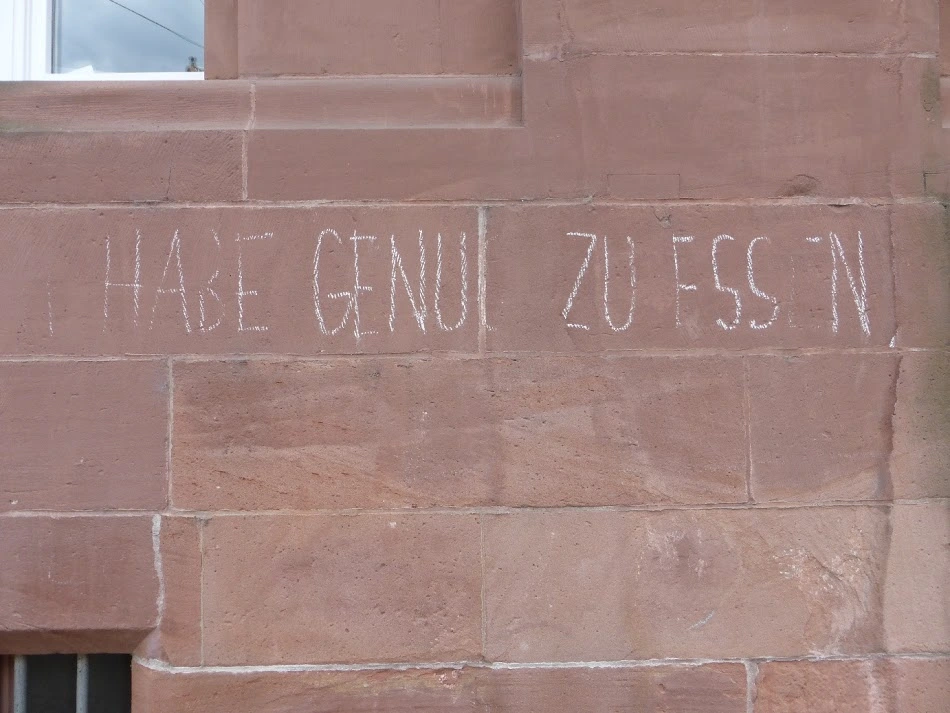 HABE GENUG ZU ESSEN,